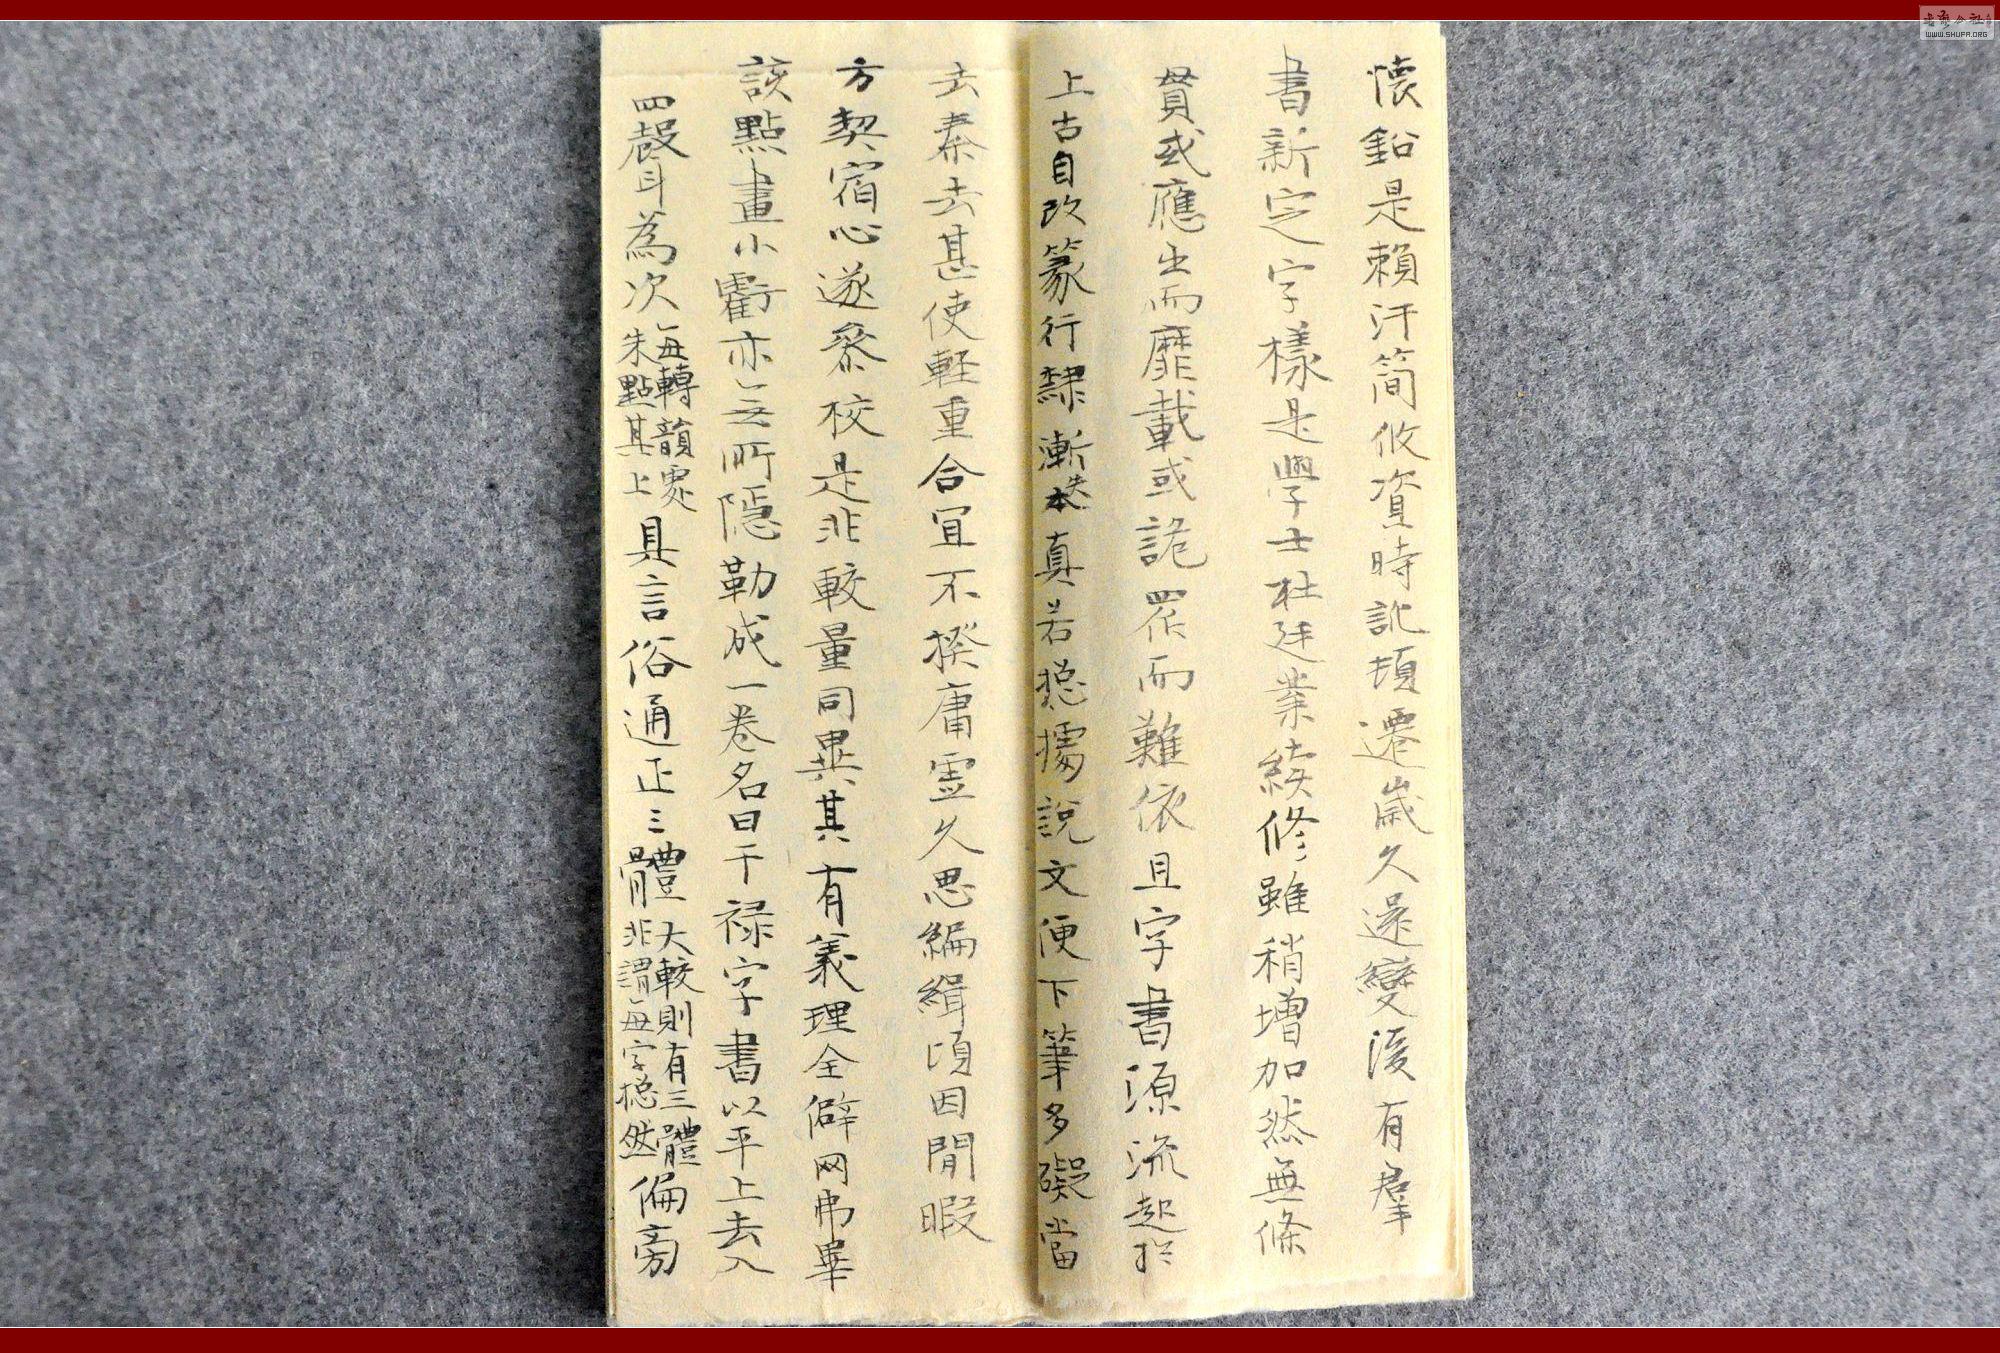 懷鉛是賴汗簡攸資時訛頓遷歲久還變後有羣
書新定字樣是學士杜延業續修雖稍增加然無條
貫或應出而靡載或詭眾而難依且字書源流起於
上古自改篆行隸漸失本真若揔據說文便下筆多礙當
去泰去甚使輕重合宜不揆庸虛久思編緝頃因閒暇
方契宿心遂參校是非較量同異其有義理全僻罔弗畢
該點畫小虧亦無所隱勒成一卷名曰干祿字書以平上去入
四聲為次每轉韻處朱點其上具言俗通正三體大較則有三體非謂每字揔然偏旁
書法公社
WWW.SHUFA.ORG